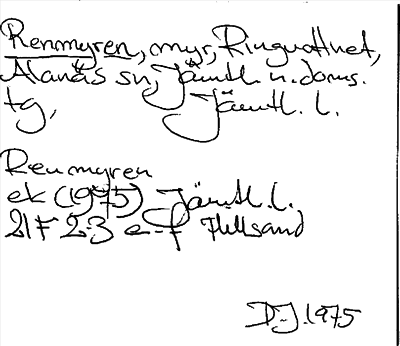 Renmyren, myr, Ringvattnet,
Alanäs sn, Jämtl. n. doms.
tg, Jämtl. l.
Renmyren
ek (1975) Jämtl. l.
21F 2-3 e-f Hellsand
D-J. 1975